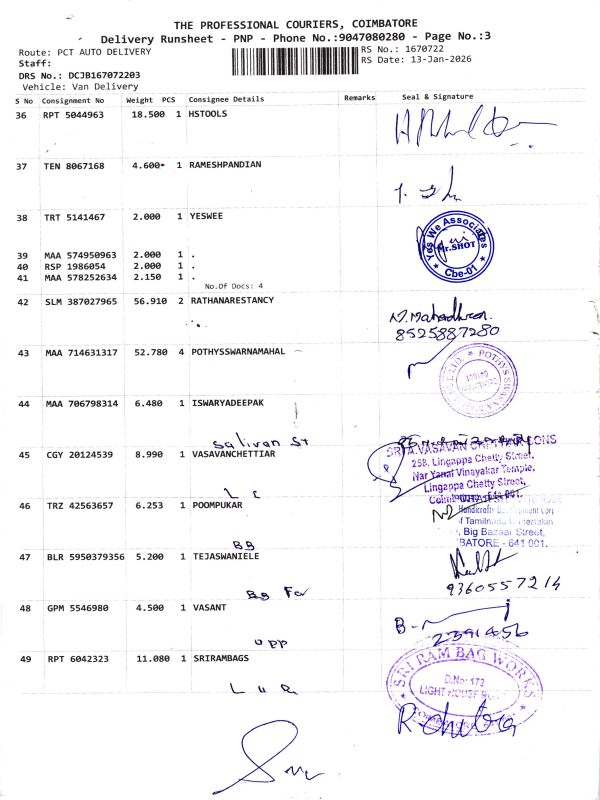 THE PROFESSIONAL COURIERS, COIMBATORE
Delivery Runsheet - PNP - Phone No.:9047080280 - Page No.:3
Route: PCT AUTO DELIVERY
RS No.: 1670722
Staff:
RS Date: 13-Jan-2026
DRS No.: DCJB167072203
Vehicle: Van Delivery
S No Consignment No Weight PCS Consignee Details Remarks Seal & Signature
36 RPT 5044963 18.500 1 HSTOOLS
37 TEN 8067168 4.600 1 RAMESHPANDIAN
38 TRT 5141467 2.000 1 YESWEE
Yes We Associates
Mr.SHOT
* Cbe-01 *
39 MAA 574950963 2.000 1 .
40 RSP 1986054 2.000 1 .
41 MAA 578252634 2.150 1 .
No.Of Docs: 4
42 SLM 387027965 56.910 2 RATHANARESTANCY
8525887280
43 MAA 714631317 52.780 4 POTHYSSWARNAMAHAL
44 MAA 706798314 6.480 1 ISWARYADEEPAK
Salivan St
45 CGY 20124539 8.990 1 VASAVANCHETTIAR
258, Lingappa Chetty Street,
Nar Yanai Vinayakar Temple,
Lingappa Chetty Street,
46 TRZ 42563657 6.253 1 POOMPUKAR
Big Bazaar Street,
BATORE - 641 001.
BB
47 BLR 5950379356 5.200 1 TEJASWANIELE
9360557214
48 GPM 5546980 4.500 1 VASANT
2391456
opp
49 RPT 6042323 11.080 1 SRIRAMBAGS
SRI RAM BAG WORKS
D.No: 172
LIGHT HOUSE